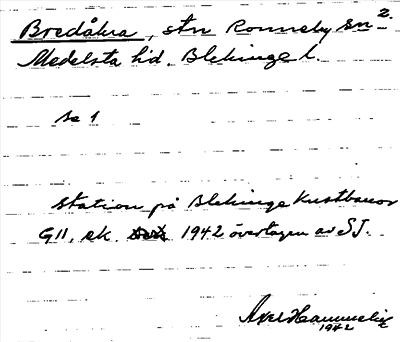 Bredåkra, stn Ronneby sn 2.
Medelsta hd. Blekinge l.
se 1
station på Blekinge Kustbanor
G11, ek. 1942 övertagen av SJ.
Axel Hammelin
1942